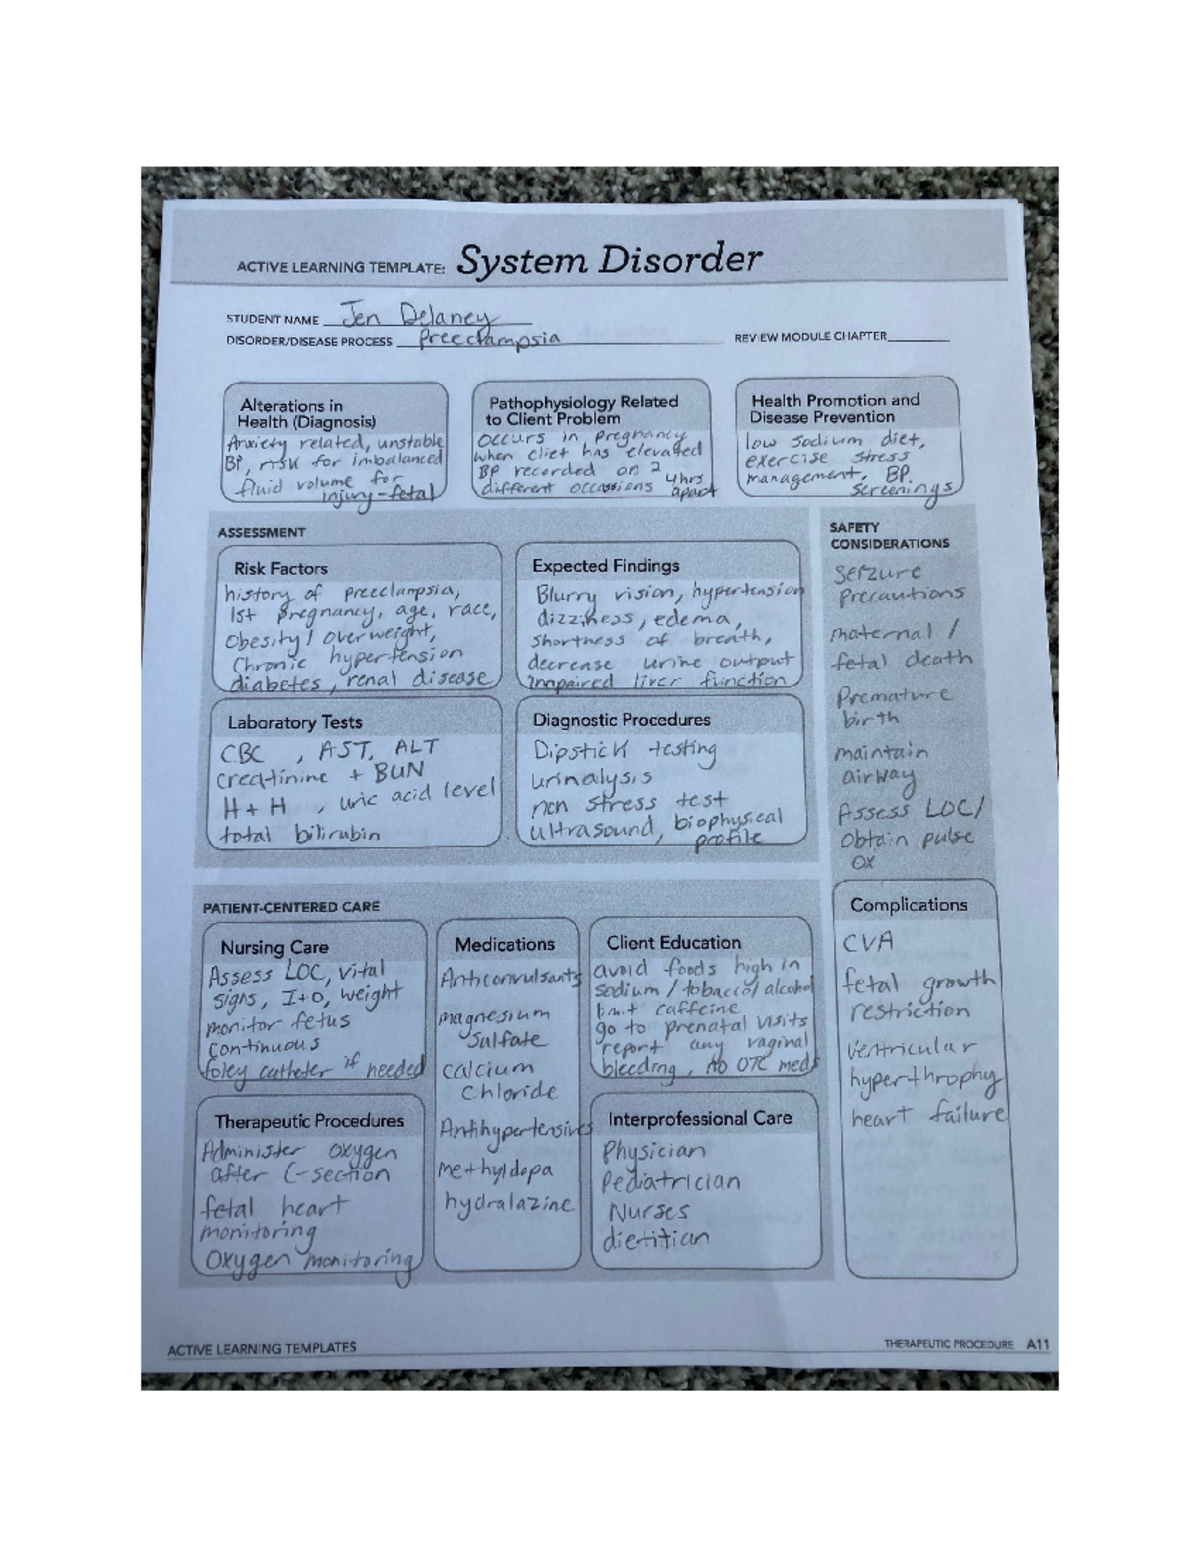 ACTIVE LEARNING TEMPLATE: System Disorder
STUDENT NAME Jen Delaney
DISORDER/DISEASE PROCESS Preeclampsia
REVIEW MODULE CHAPTER
Alterations in
Health (Diagnosis)
Anxiety related, unstable
BP, risk for imbalanced
fluid volume for
injury-fetal
Pathophysiology Related
to Client Problem
occurs in pregnancy
when cliet has elevated
BP recorded on 2
different occassions 4hrs
apart
Health Promotion and
Disease Prevention
low sodium diet,
exercise stress
management, BP
screenings
ASSESSMENT
Risk Factors
history of preeclampsia,
1st pregnancy, age, race,
Obesity/overweight,
Chronic hypertension
diabetes, renal disease
Expected Findings
Blurry vision, hypertension
dizziness, edema,
shortness of breath,
decrease urine output
impaired liver function
Laboratory Tests
CBC, AST, ALT
creatinine + BUN
H+H, uric acid level
total bilirubin
Diagnostic Procedures
Dipstick testing
urinalysis
non stress test
ultrasound, biophysical
profile
SAFETY
CONSIDERATIONS
Seizure
Precautions
maternal/
fetal death
Premature
birth
maintain
airway
Assess LOC/
Obtain pulse
OX
PATIENT-CENTERED CARE
Nursing Care
Assess LOC, vital
signs, I+O, weight
monitor fetus
continuous
foley catheter if needed
Medications
Anticonvulsants
magnesium
Sulfate
calcium
Chloride
Antihypertensives
methyldopa
hydralazine
Client Education
avoid foods high in
sodium/tobacco/alcohol
limit caffeine
go to prenatal visits
report any vaginal
bleeding, No OTC meds
Complications
CVA
fetal growth
restriction
Ventricular
hyperthrophy
heart failure
Therapeutic Procedures
Administer oxygen
after C-section
fetal heart
monitoring
Oxygen monitoring
Interprofessional Care
Physician
Pediatrician
Nurses
dietitian
ACTIVE LEARNING TEMPLATES
THERAPEUTIC PROCEDURE A11